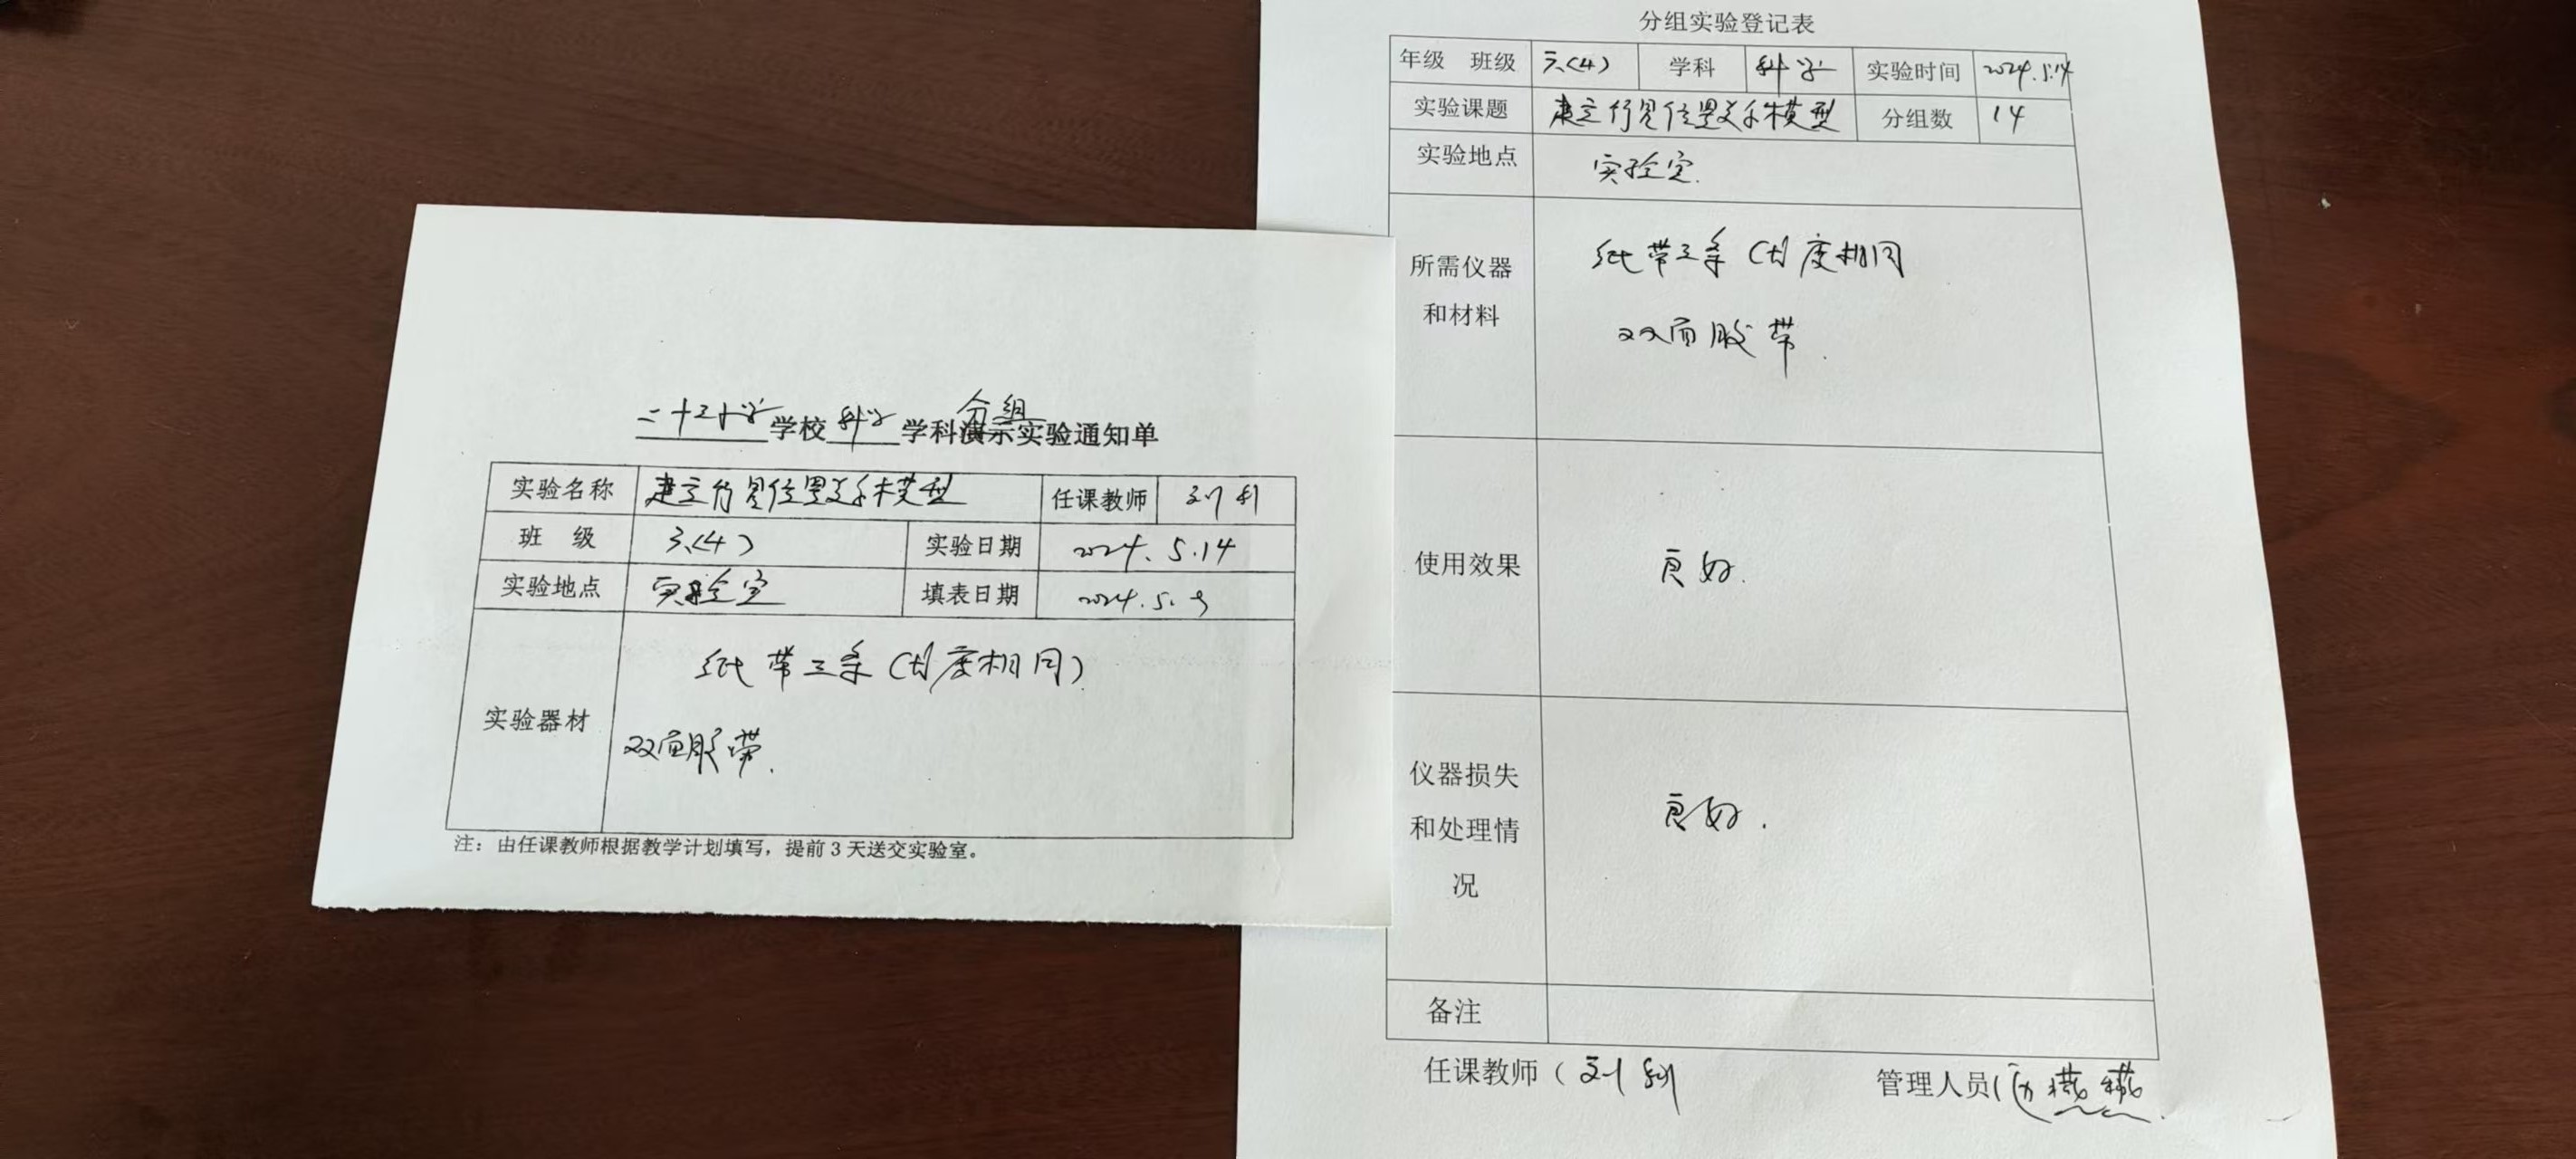 二十三小学学校科学学科分组实验通知单
实验名称 建立行星位置关系模型 任课教师 刘
班 级 六(4) 实验日期 2024.5.14
实验地点 实验室 填表日期 2024.5.9
实验器材 纸带三条(长度相同)
双面胶带.
注：由任课教师根据教学计划填写，提前3天送交实验室。
分组实验登记表
年级 班级 六(4) 学科 科学 实验时间 2024.5.14
实验课题 建立行星位置关系模型 分组数 14
实验地点 实验室.
所需仪器
和材料
纸带三条(长度相同
双面胶带.
使用效果 良好.
仪器损失
和处理情
况
良好.
备注
任课教师（刘
管理人员(